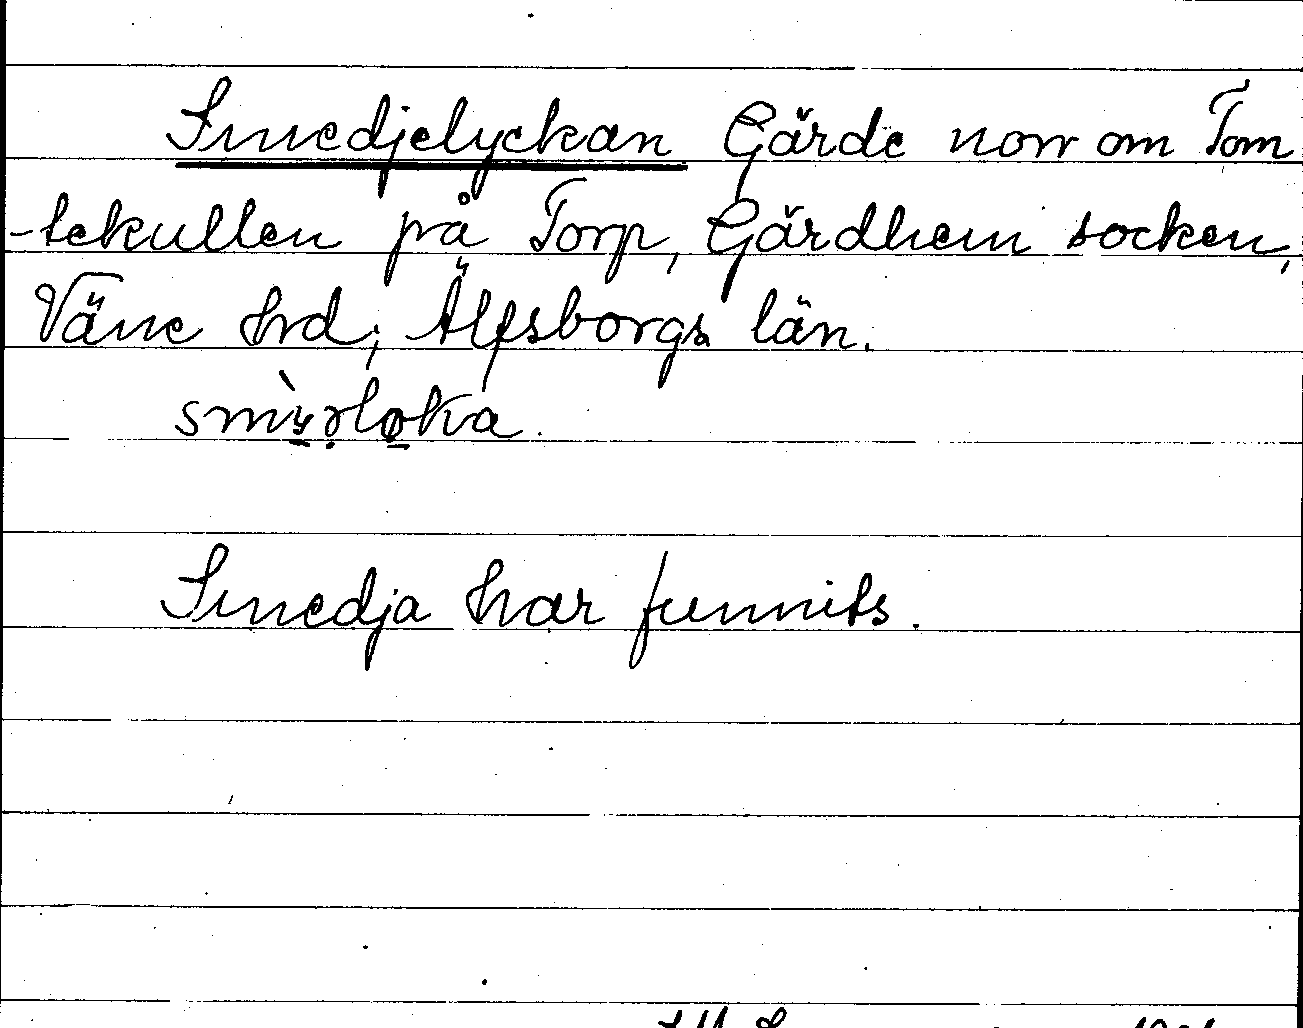 Smedjelyckan Gärde norr om Tom
-tekullen på Torp, Gärdhem socken,
Väne hrd, Älfsborgs län.
Smedja har funnits.